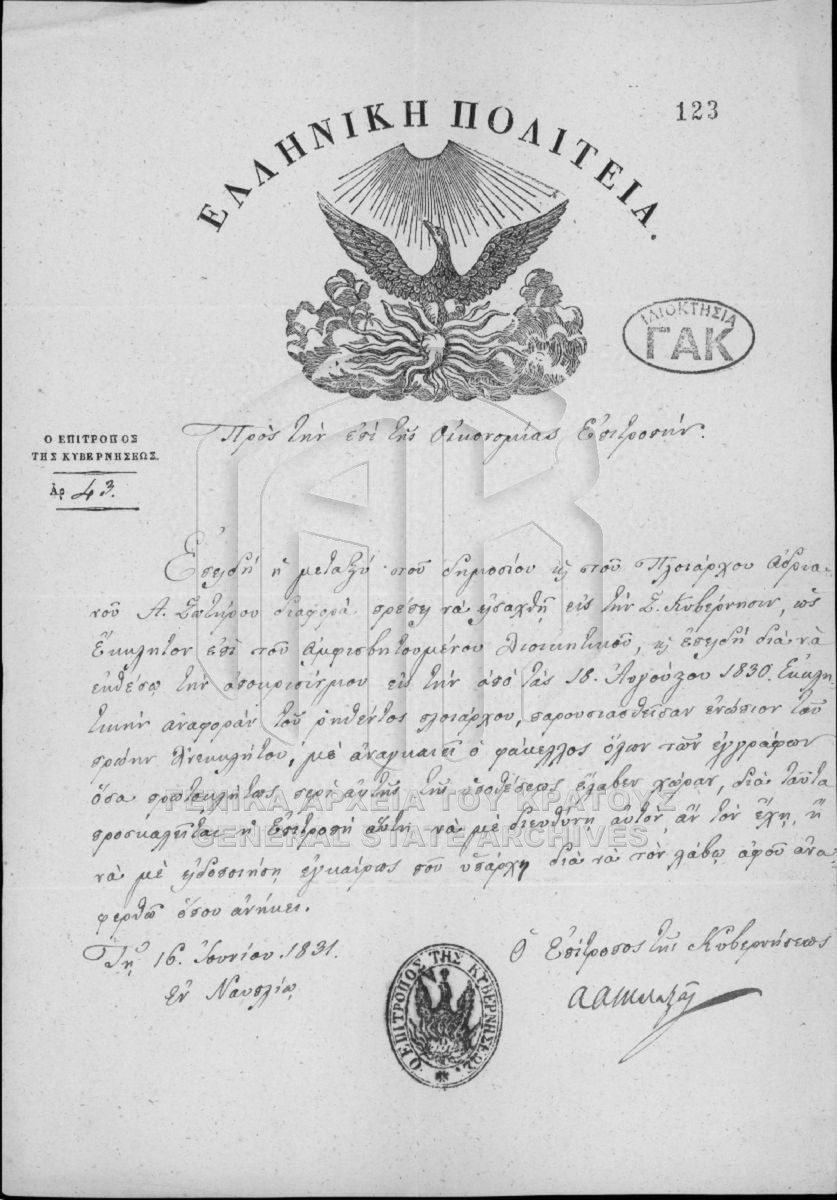 123
ΕΛΛΗΝΙΚΗ ΠΟΛΙΤΕΙΑ.
ΙΔΙΟΚΤΗΣΙΑ
ΓΑΚ
Ο ΕΠΙΤΡΟΠΟΣ
ΤΗΣ ΚΥΒΕΡΝΗΣΕΩΣ.
Ἀρ 43.
Πρὸς τὴν ἐπὶ τῆς Οἰκονομίας Ἐπιτροπήν.
Ἐπειδὴ ἡ μεταξὺ τοῦ δημοσίου ϗ τοῦ Πλοιάρχου Ἀδρια-
νοῦ Α. Σωτήρου διαφορὰ πρέπει νὰ εἰσαχθῇ εἰς τὴν Σ. Κυβέρνησιν, ὡς
ἔκκλητον ἐπὶ τοῦ ἀμφισβητουμένου Διοικητικοῦ, ϗ ἐπειδὴ διὰ νὰ
ἐκθέσω τὴν ἀπόκρισίν μου εἰς τὴν ἀπὸ τὰς 18. Αὐγούστου 1830. Ἐκκλη-
τικὴν ἀναφορὰν τοῦ ῥηθέντος πλοιάρχου, παρουσιασθεῖσαν ἐνώπιον τοῦ
πρώην Ἀνεκκλήτου, μὲ ἀναγκαιεῖ ὁ φάκελλος ὅλων τῶν ἐγγράφων
ὅσα πρωτοκλήτως περὶ αὐτῆς τῆς ὑποθέσεως ἔλαβεν χώραν, διὰ ταῦτα
προσκαλεῖται ἡ Ἐπιτροπὴ αὕτη νὰ μὲ διευθύνῃ αὐτόν, ἂν τὸν ἔχῃ, ἢ
νὰ μὲ εἰδοποιήσῃ ἐγκαίρως ποῦ ὑπάρχῃ διὰ νὰ τὸν λάβω ἀφοῦ ἀνα-
φερθῶ ὅπου ἀνήκει.
Τῇ 16. Ἰουνίου 1831.
Ἐν Ναυπλίῳ
Ὁ Ἐπίτροπος τῆς Κυβερνήσεως
Ο ΕΠΙΤΡΟΠΟΣ ΤΗΣ ΚΥΒΕΡΝΗΣΕΩΣ.
ΓΕΝΙΚΑ ΑΡΧΕΙΑ ΤΟΥ ΚΡΑΤΟΥΣ
GENERAL STATE ARCHIVES